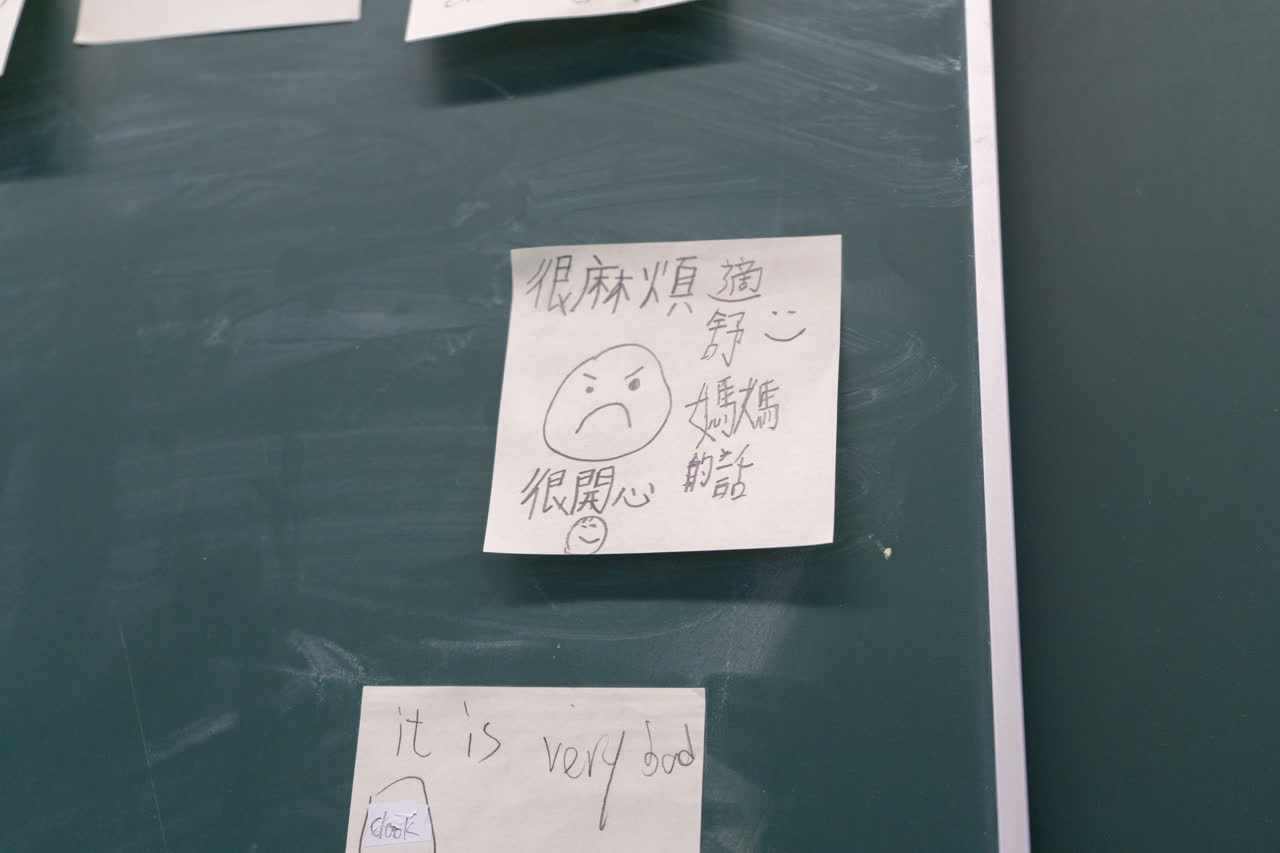 很麻煩
很開心
適
舒
媽媽
的話
it is very bad
clook